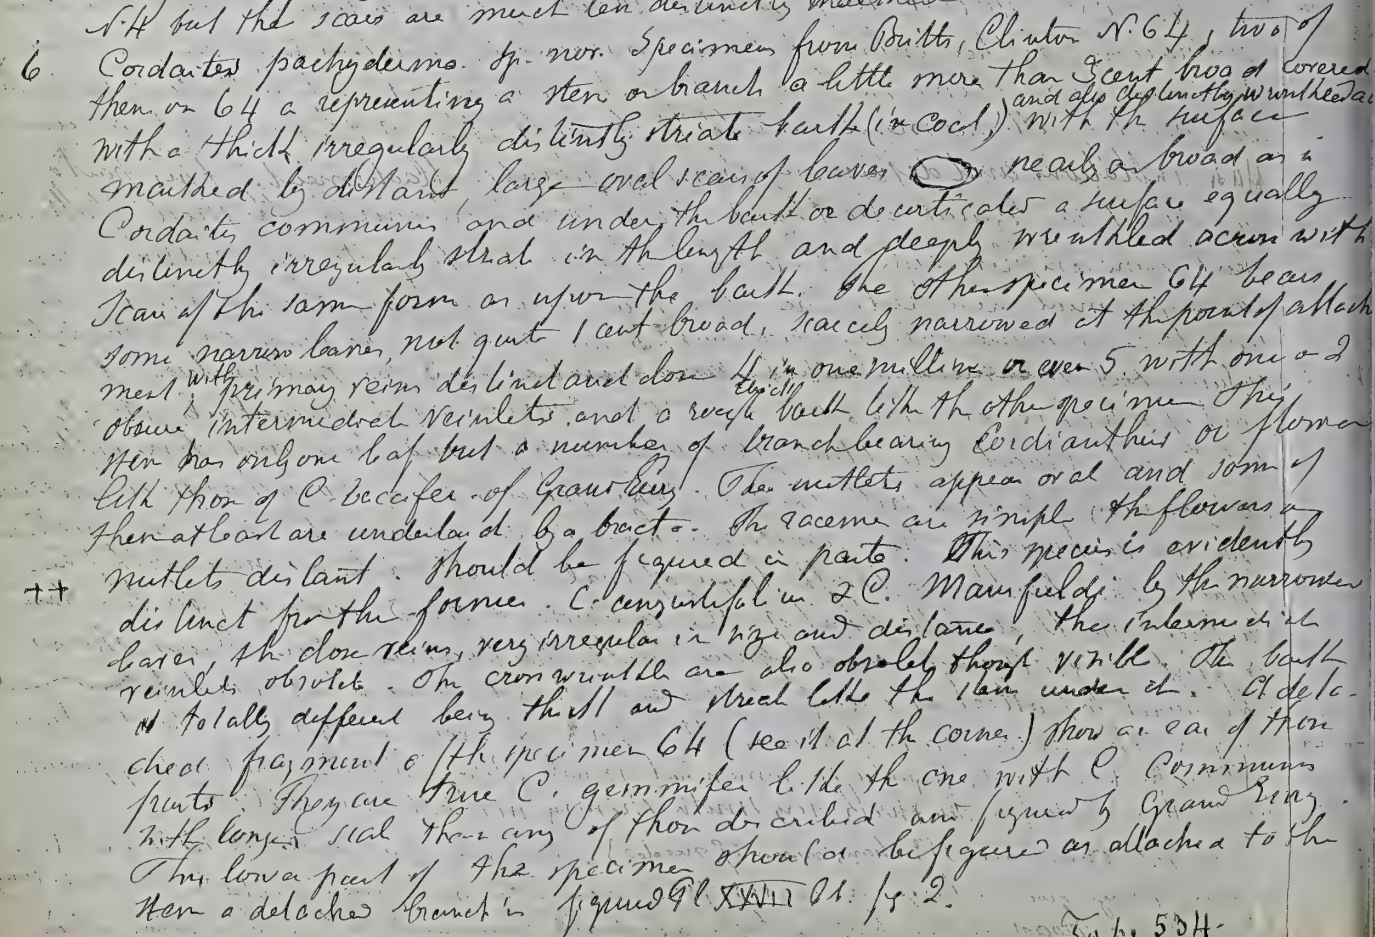 N. 4 but the scars are much less distinctly marked
6 Cordaites pachyderma. sp. nov. Specimens from Britts, Clinton N. 64, two of
them on 64 a representing a stem or branch a little more than 3 cent broad covered
and also distinctly wrinkled
with a thick irregularly distinctly striate bark (in coal,) with the surface
marked by distant, large oval scars of leaves nearly as broad as in
Cordaites communis and under the bark or decorticated a surface equally
distinctly irregularly striate in the length and deeply wrinkled across with
scars of the same form as upon the bark. The other specimen 64 bears
some narrow leaves, not quite 1 cent broad, scarcely narrowed at the point of attach
ment, with primary veins distinct and close 4 in one millim or even 5. with one or 2
thick
obscure intermediate veinlets. and a rough bark like the other specimen This
stem has only one leaf but a number of branch bearing Cordianthus or flower
like those of C. baccifer of Grand'Eury. The nutlets appear oval and some of
them at least are underlaid by a bract. The racemes are simple the flowers or
nutlets distant. Should be figured in parts. This species is evidently
++ distinct from the former. C. angustifolius & C. Mansfieldi by the narrower
leaves, the close veins, very irregular in size and distance, the intermediate
veinlets obsolete. The cross wrinkles are also obsolete though visible. The bark
is totally different being thick and streak like the stem under it. A deta-
ched fragment of the specimen 64 (see it at the corner) show an ear of those
parts. They are true C. gemmifer like the one with C. Communis
with longer than any of those described and figured by Grand'Eury.
This lower part of the specimen should be figured as attached to the
stem a detached branch is figured Pl XXVII fig 2.
534.